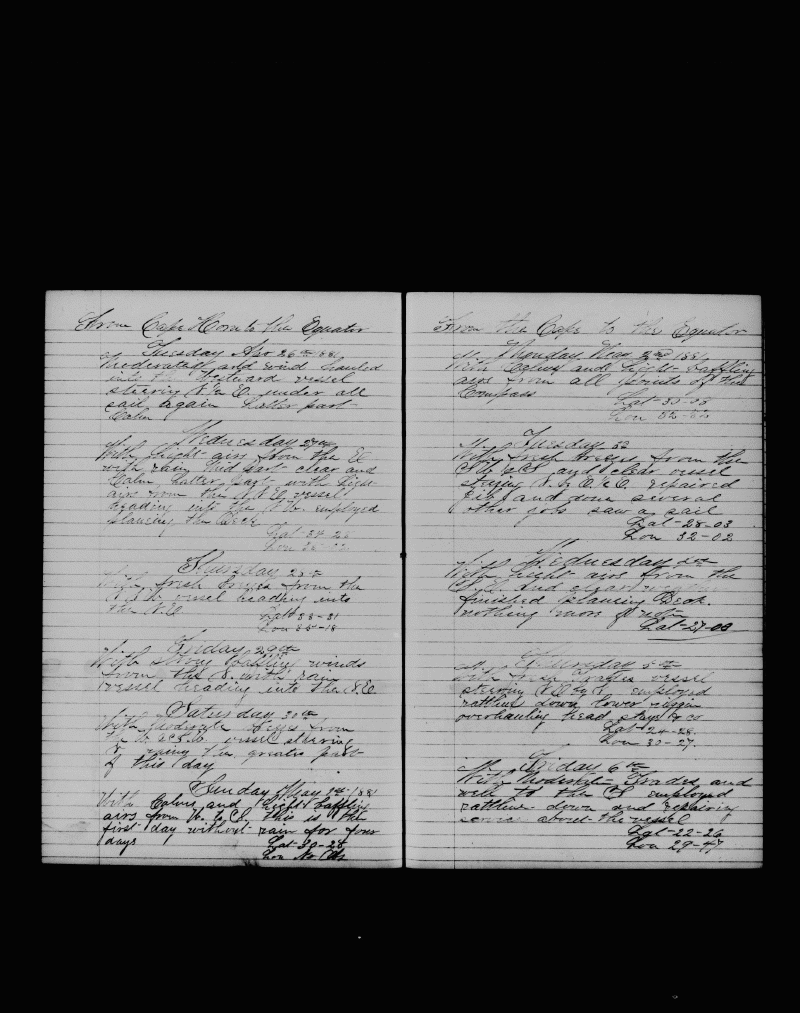 From Cape Horn to the Equator
Tuesday Apr 26th 1881
Moderated and wind hauled
into the Westward vessel
steering N.N.E. under all
sail again Latter part
Calm
Wednesday 27th
With light airs from the E
with rain Mid part clear and
Calm, Latter part with light
airs from the vessel
heading into the employed
planeing the Deck
Lat - 34 -
Lon 35 -
Thursday 28th
With fresh breezes from the
vessel heading into
the N.E
Lat 33 - 31
Lon 35 - 18
Friday 29th
With strong baffling winds
from the with rain
vessel heading into the N.E.
Saturday 30th
With Moderate from
the vessel steering
N. the greater part
of this day
Sunday May 1st 1881
With Calms and light baffling
airs from N. to E, this is the
first day without rain for four
days
Lat - 30 - 28
Lon No Obs
From the Cape to the Equator
Monday May 2nd 1881
With Calms and light baffling
airs from all points of the
Compass
Lat - 30 - 05
Lon 32 - 52
Tuesday 3d
With fresh breezes from the
and clear vessel
repaired
and done several
other jobs saw a sail
Lat - 28 - 03
Lon 32 - 02
Wednesday 4th
With light airs from the
and clear
finished planeing Deck.
nothing more of note
Lat - 27 - 00
Thursday 5th
With fresh Trades vessel
steering employed
rattling down lower riggin
overhauling head stays & co
Lat - 24 - 28
Lon 30 - 27
Friday 6th
With Moderate Trades and
well to the E employed
rattling down and repairing
about the vessel
Lat - 22 - 26
Lon 29 - 47